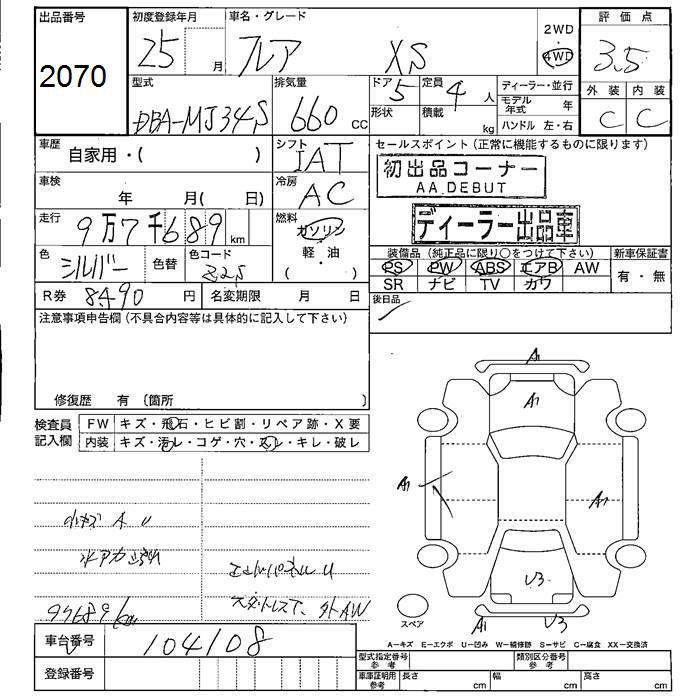 出品番号
2070
初度登録年月
25
月
車名・グレード
フレア XS
2WD
4WD
評価点
3.5
外装 内装
C C
型式
DBA-MJ34S
排気量
660 cc
ドア 5
形状
定員 4 人
積載 kg
ディーラー・並行
モデル年式 年
ハンドル 左・右
車歴
自家用・( )
シフト
IAT
セールスポイント(正常に機能するものに限ります)
初出品コーナー
AA DEBUT
ディーラー出品車
車検
年 月( 日)
冷房
AC
走行
9万7千689 km
燃料
ガソリン
軽・油
( )
色
シルバー
色替
色コード
Z2S
装備品(純正品に限り○をつけて下さい)
PS PW ABS エアB AW
SR ナビ TV カワ
新車保証書
有・無
R券 8490 円
名変期限 月 日
後日品
注意事項申告欄(不具合内容等は具体的に記入して下さい)
修復歴 有 (箇所 )
検査員記入欄
FW キズ・飛石・ヒビ割・リペア跡・X要
内装 キズ・汚レ・コゲ・穴・スレ・キレ・破レ
小キズ A U
水アカ
97689km
エンドパネルU
スタットレスT、外AW
A1
A1
A1
A1
U3
A1
U3
スペア
A−キズ E−エクボ U−凹み W−補修跡 S−サビ C−腐食 XX−交換済
車台番号
104108
登録番号
型式指定番号
参考
類別区分番号
参考
車庫証明用
参考
長さ cm
幅 cm
高さ cm